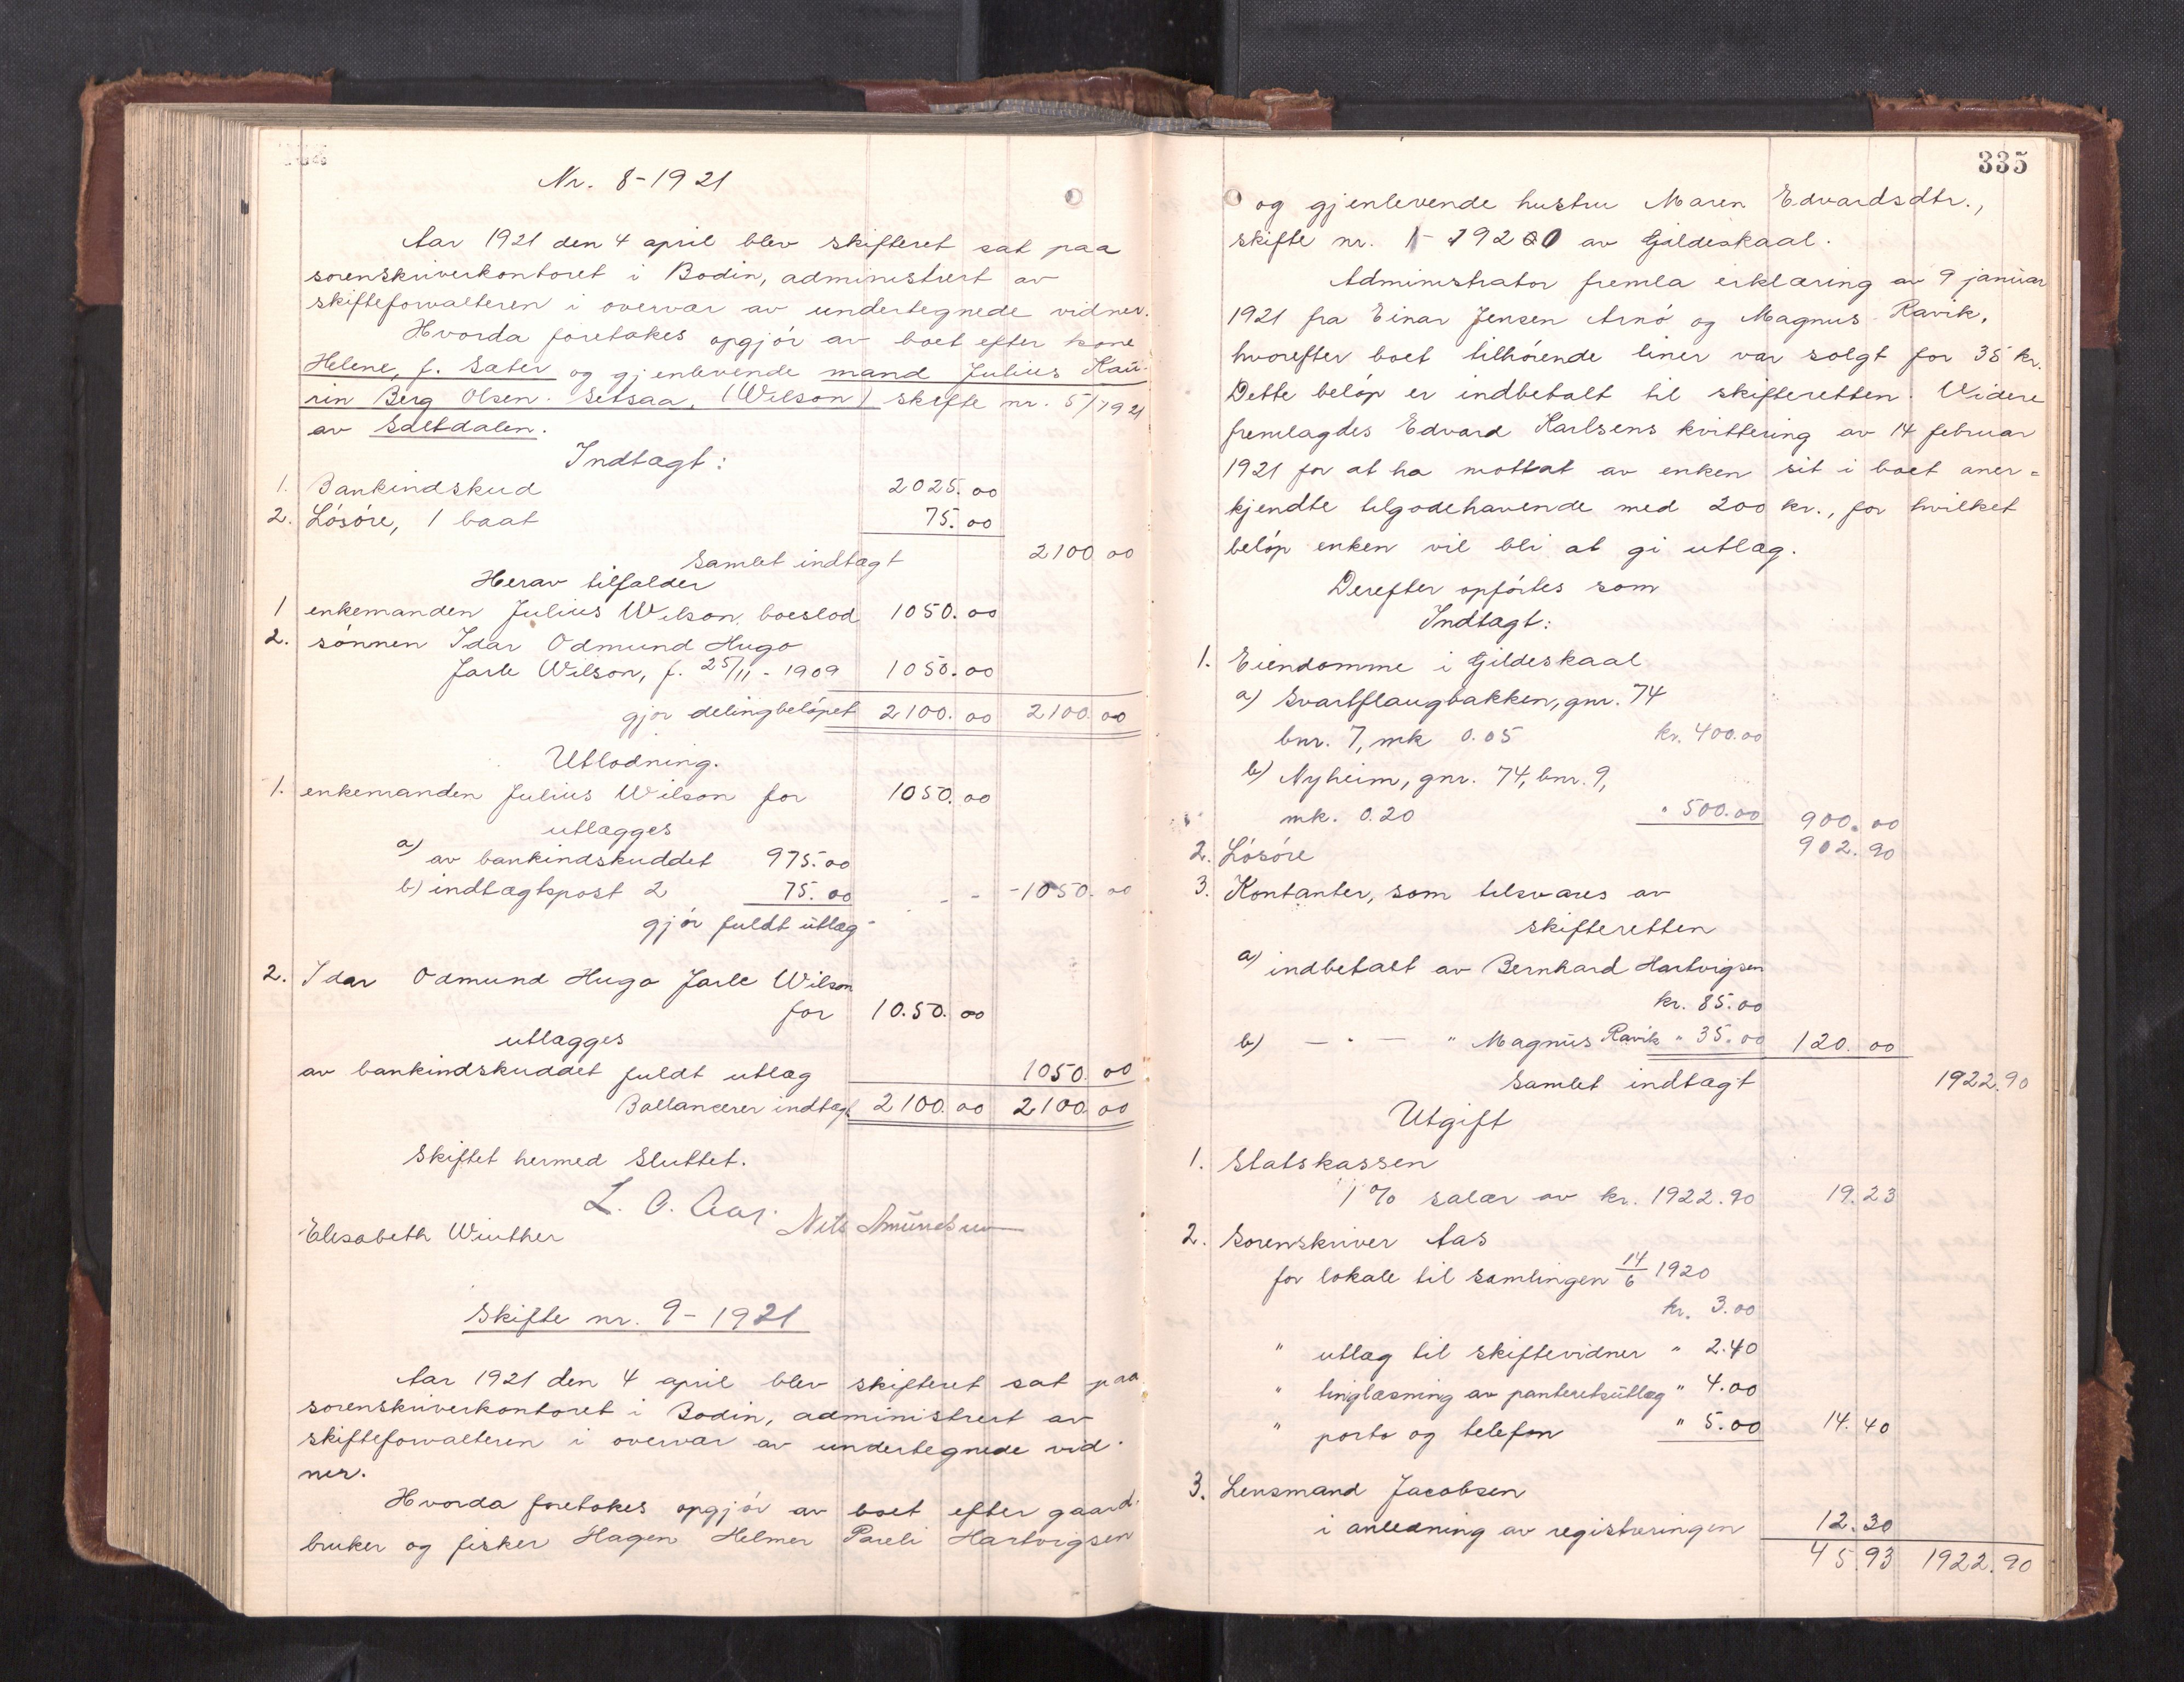 Nr. 8-1921
Aar 1921 den 4 april blev skifteret sat paa
sorenskriverkontoret i Bodin, administrert av
skifteforvalteren i overvær av undertegnede vidner.
Hvorda foretokes opgjör av boet efter kone
Helene, f. Sæter og gjenlevende mand Julius Kau-
rin Berg Olsen. Setsaa, (Wilson) skifte nr. 5/1921
av Saltdalen.
Indtægt:
1. Bankindskud 2025.00
2. Lösöre, 1 baat 75.00
Samlet indtægt 2100 00
Herav tilfalder
1 enkemanden Julius Wilson, boeslod 1050.00
2. sönnen Idar Odmund Hugo
Jarle Wilson, f. 25/11 - 1909 1050.00
gjør delingbelöpet 2100.00 2100.00
Utlodning.
1. enkemanden Julius Wilson for 1050.00
utlægges
a) av bankindskuddet 975.00
b) indtægtspost 2 75.00 - - -1050.00
gjör fuldt utlæg-
2. Idar Odmund Hugo Jarle Wilson
for 10.50.00
utlægges
av bankindskuddet fuldt utlæg 1050.00
Ballancerer indtægt 2100.00 2100.00
Skiftet hermed sluttet.
L. O. Aas.
Elisabeth Winther Nils Amundsen
Skifte nr. 9-1921
Aar 1921 den 4 april blev skifteret sat paa
sorenskriverkontoret i Bodin, administrert av
skifteforvalteren i overvær av undertegnede vid-
ner.
Hvorda foretokes opgjör av boet efter gaard-
bruker og fisker Hagen Helmer Pareli Hartvigsen
335
og gjenlevende hustru Maren Edvardsdtr.,
skifte nr. 1-1920 av Gildeskaal.
Administrator fremla erklæring av 9 januar
1921 fra Einar Jensen Arnö og Magnus Ravik,
hvorefter boet tilhörende liner var solgt for 35 kr.
Dette belöp er indbetalt til skifteretten. Videre
fremlagdes Edvard Karlsens kvittering av 14 februar
1921 for at ha mottat av enken sit i boet aner=
kjendte tilgodehavende med 200 kr., for hvilket
belöp enken vil bli at gi utlæg.
Derefter opförtes som
Indtægt:
1. Eiendomme i Gildeskaal
a) Svartflaugbakken, gnr. 74
bnr. 7, mk 0.05 kr. 400.00
b) Nyheim, gnr. 74, bnr. 9,
mk. 0.20 " 500.00 900.00
2. Lösöre 902.90
3. Kontanter, som tilsvares av
skifteretten
a) indbetalt av Bernhard Hartvigsen
kr. 85.00
b) — " — " Magnus Ravik " 35.00 120.00
Samlet indtægt 1922.90
Utgift
1. Statskassen
1 % salær av kr. 1922.90 19.23
2. Sorenskriver Aas
for lokale til samlingen 14/6 1920
kr. 3.00
" utlæg til skiftevidner " 2.40
" tinglæsning av panteretsutlæg " 4.00
" porto og telefon " 5.00 14.40
3. Lensmand Jacobsen
i anledning av registreringen 12.30
45.93 1922.90